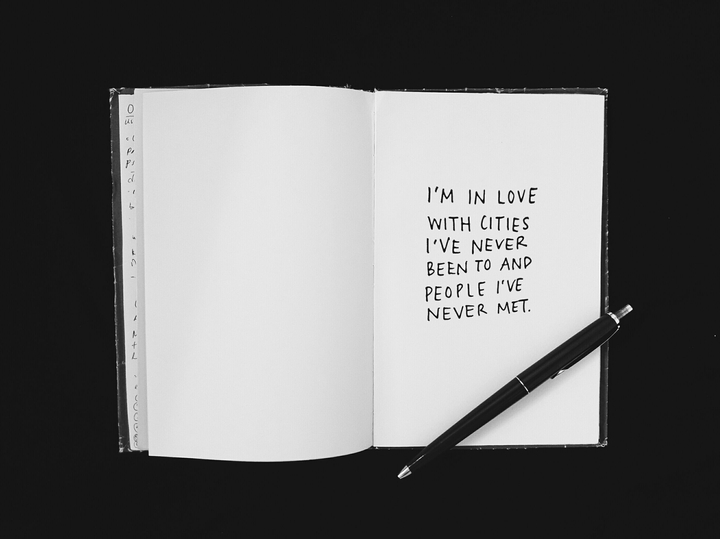 I'M IN LOVE
WITH CITIES
I'VE NEVER
BEEN TO AND
PEOPLE I'VE
NEVER MET.